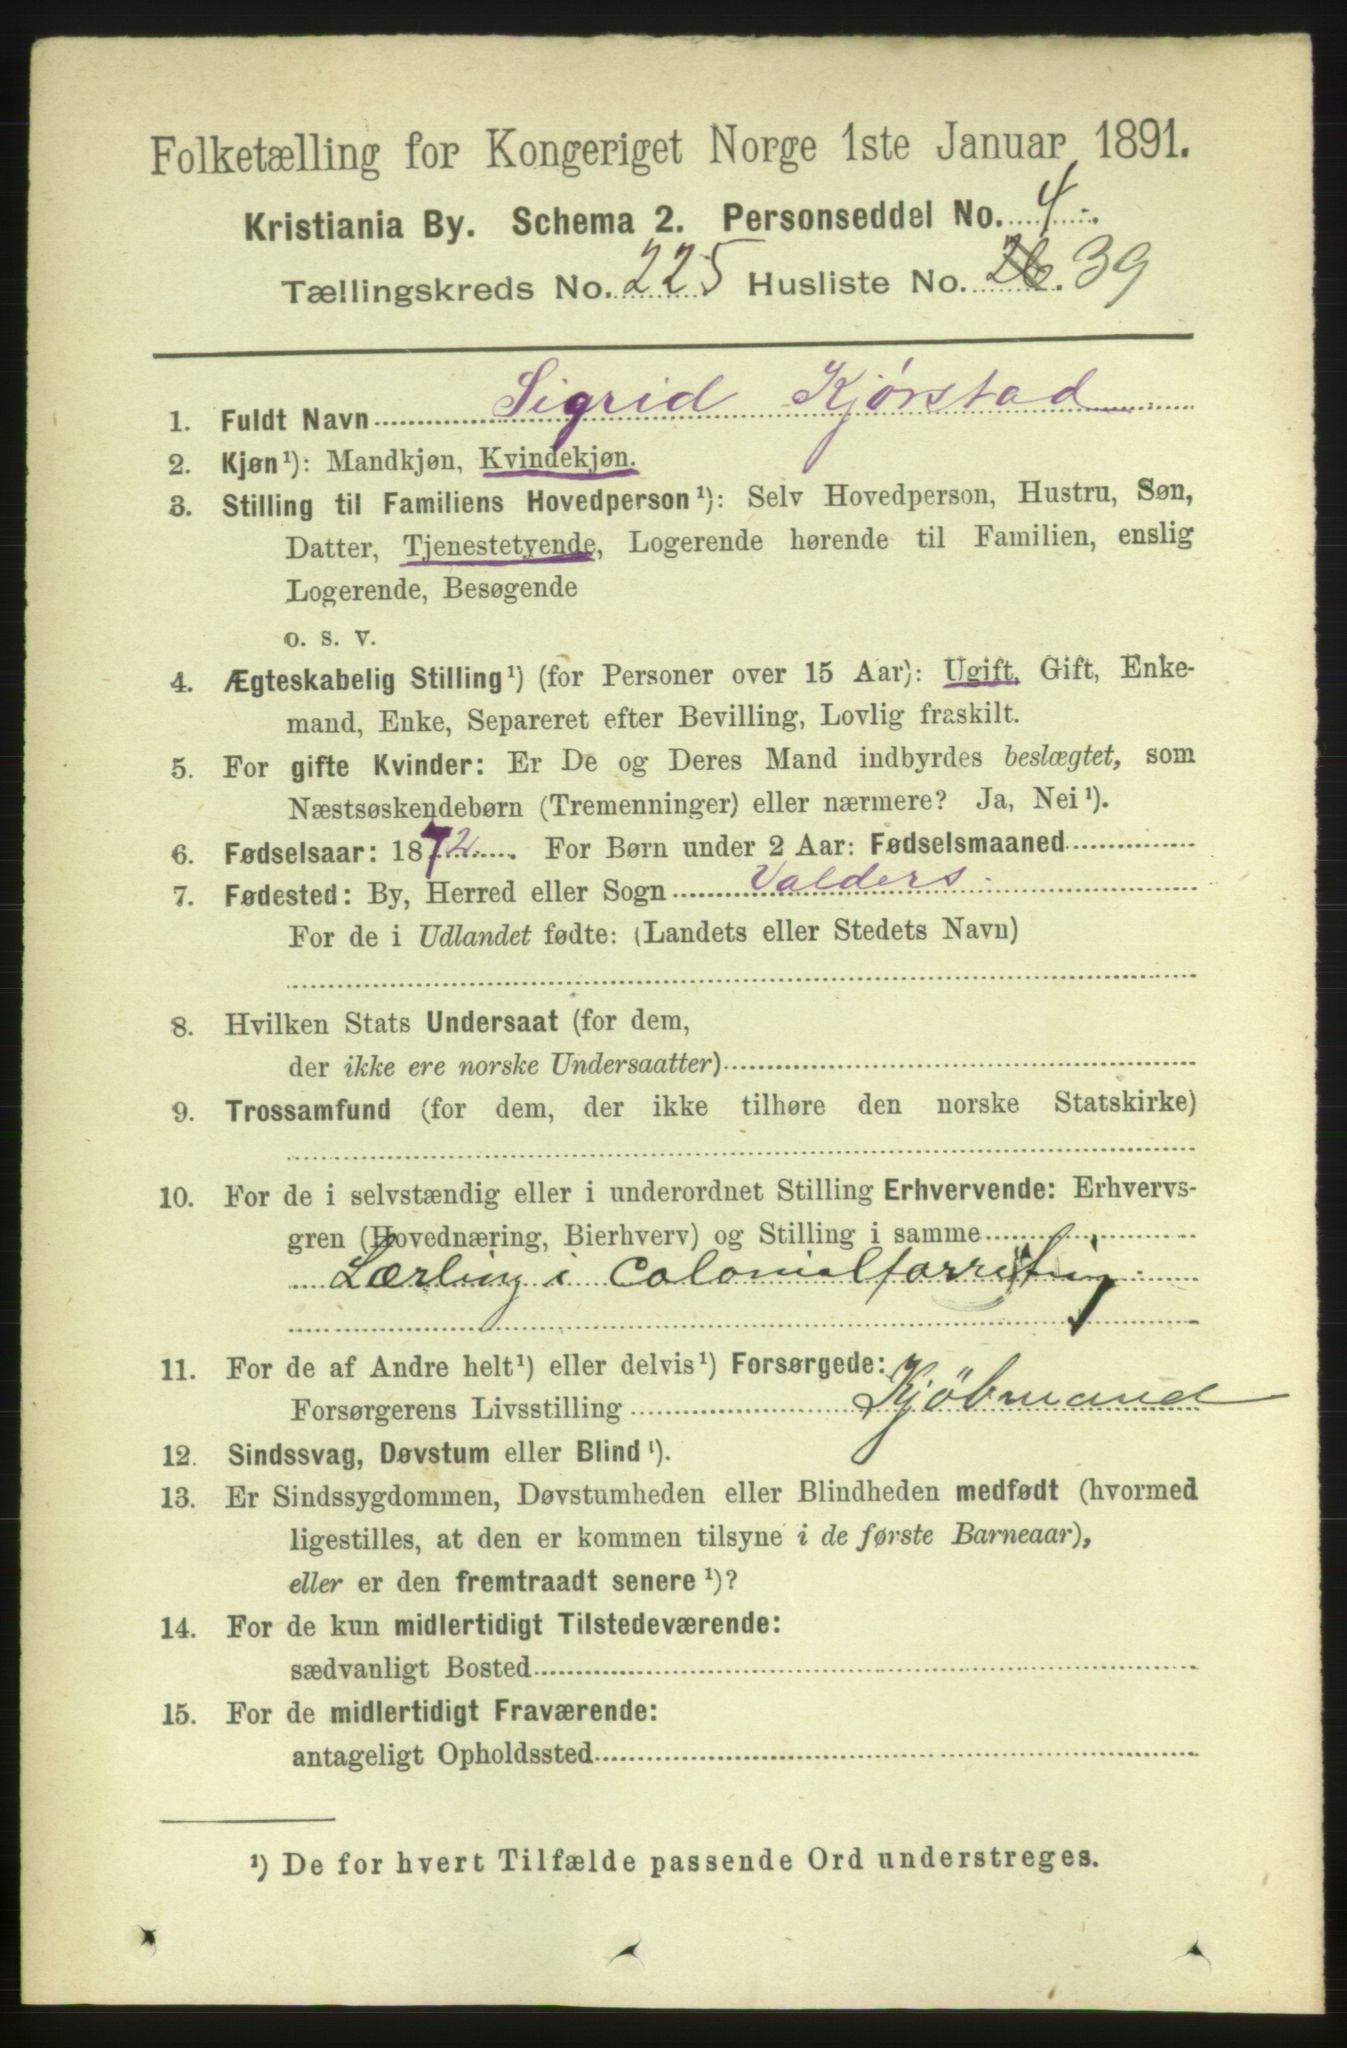 Folketælling for Kongeriget Norge 1ste Januar 1891.
Kristiania By. Schema 2. Personseddel No. 4.
Tællingskreds No. 225 Husliste No. 26. 39
1. Fuldt Navn Sigrid Kjørstad
2. Kjøn¹): Mandkjøn, Kvindekjøn.
3. Stilling til Familiens Hovedperson¹): Selv Hovedperson, Hustru, Søn,
Datter, Tjenestetyende, Logerende hørende til Familien, enslig
Logerende, Besøgende
o. s. v.
4. Ægteskabelig Stilling¹) (for Personer over 15 Aar): Ugift, Gift, Enke-
mand, Enke, Separeret efter Bevilling, Lovlig fraskilt.
5. For gifte Kvinder: Er De og Deres Mand indbyrdes beslægtet, som
Næstsøskendebørn (Tremenninger) eller nærmere? Ja, Nei¹).
6. Fødselsaar: 1872. For Børn under 2 Aar: Fødselsmaaned
7. Fødested: By, Herred eller Sogn Valders
For de i Udlandet fødte: (Landets eller Stedets Navn)
8. Hvilken Stats Undersaat (for dem,
der ikke ere norske Undersaatter)
9. Trossamfund (for dem, der ikke tilhøre den norske Statskirke)
10. For de i selvstændig eller i underordnet Stilling Erhvervende: Erhvervs-
gren (Hovednæring, Bierhverv) og Stilling i samme
Lærling i Colonialforretning
11. For de af Andre helt¹) eller delvis¹) Forsørgede:
Forsørgerens Livsstilling Kjöbmand
12. Sindssvag, Døvstum eller Blind¹).
13. Er Sindssygdommen, Døvstumheden eller Blindheden medfødt (hvormed
ligestilles, at den er kommen tilsyne i de første Barneaar),
eller er den fremtraadt senere¹)?
14. For de kun midlertidigt Tilstedeværende:
sædvanligt Bosted
15. For de midlertidigt Fraværende:
antageligt Opholdssted
¹) De for hvert Tilfælde passende Ord understreges.